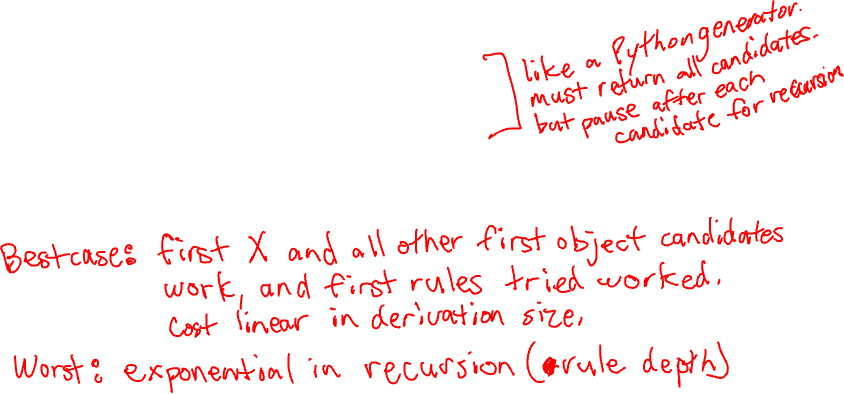 like a Python generator.
must return all candidates.
but pause after each
candidate for recursion
Best case: first X and all other first object candidates
work, and first rules tried worked.
Cost linear in derivation size.
Worst: exponential in recursion (rule depth)